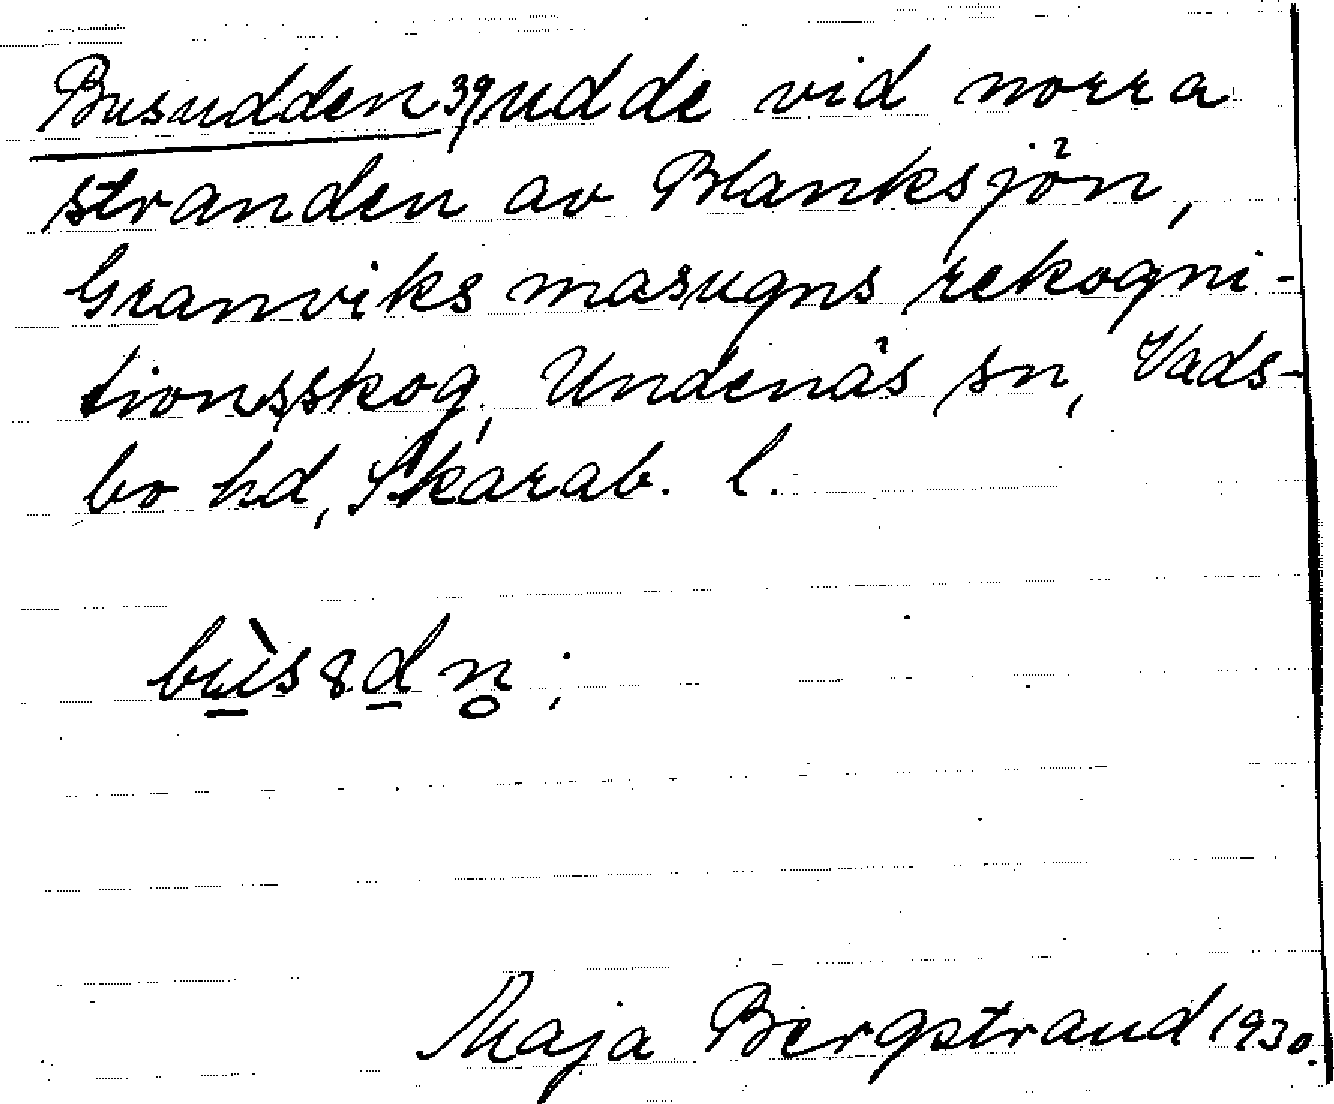 Busudden 39, udde vid norra
stranden av Blanksjön,
Granviks masugns rekogni-
tionsskog, Undenäs sn, Vads-
bo hd, Skarab. l.
Maja Bergstrand 1930.